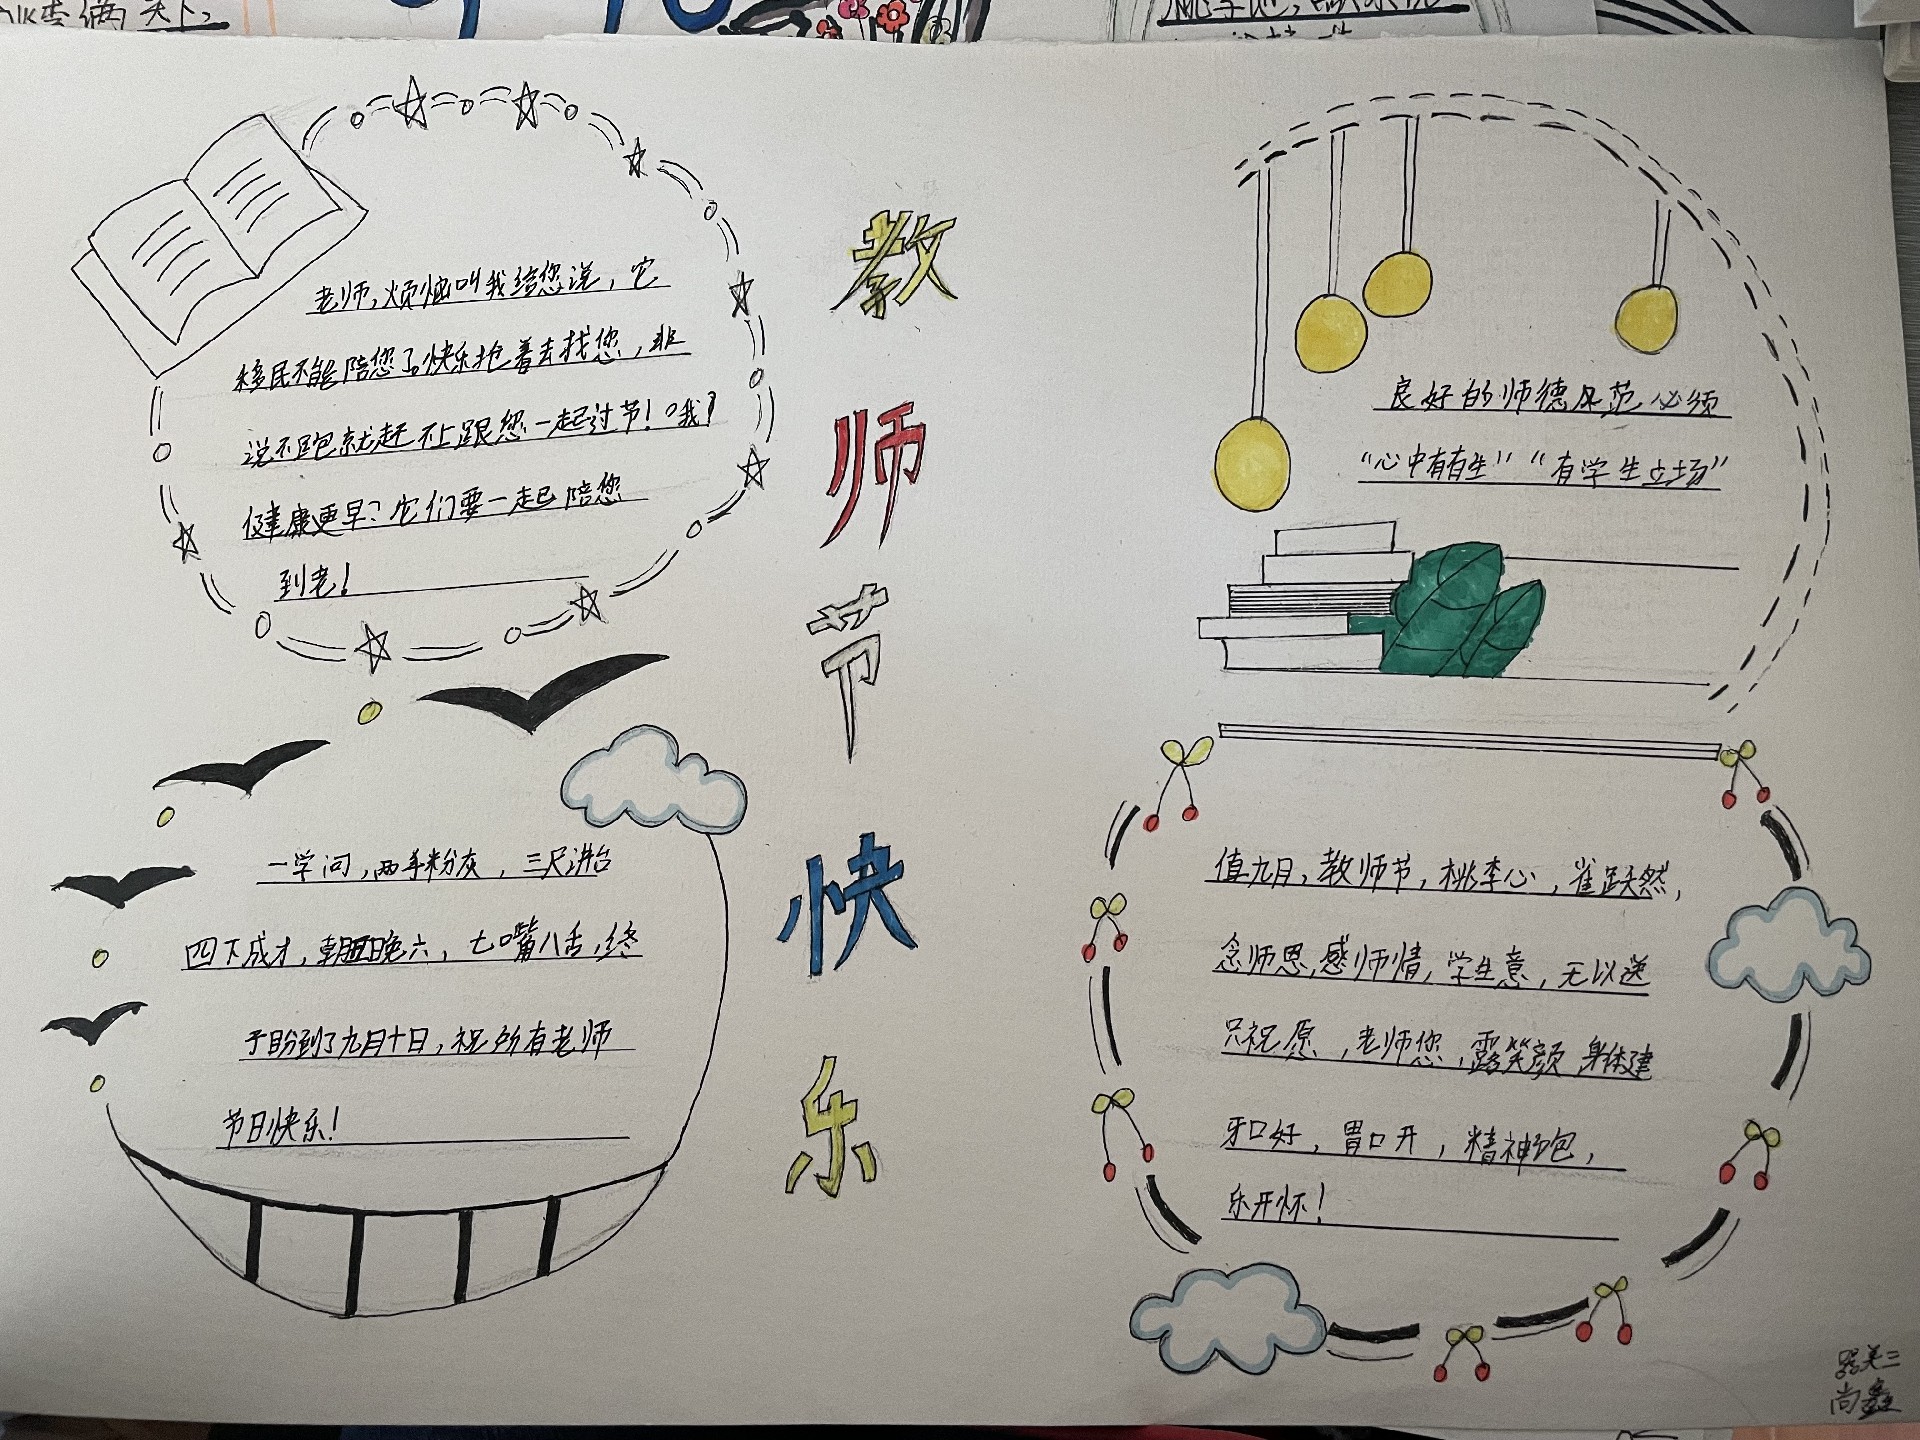 老师,烦恼叫我给您说,它
移民不能陪您了。快乐抢着去找您,非
说不跑就赶不上跟您一起过节!哦?
健康更早?它们要一起陪您
到老!
一学问,两手粉灰,三尺讲台
四下成才,朝五晚六,七嘴八舌,终
于盼到了九月十日,祝所有老师
节日快乐!
教
师
节
快
乐
良好的师德风范必须
“心中有有生”“有学生立场”
值九月,教师节,桃李心,雀跃然,
念师恩,感师情,学生意,无以送
只祝愿,老师您,露笑颜 身体建
牙口好,胃口开,精神饱,
乐开怀!
尚鑫